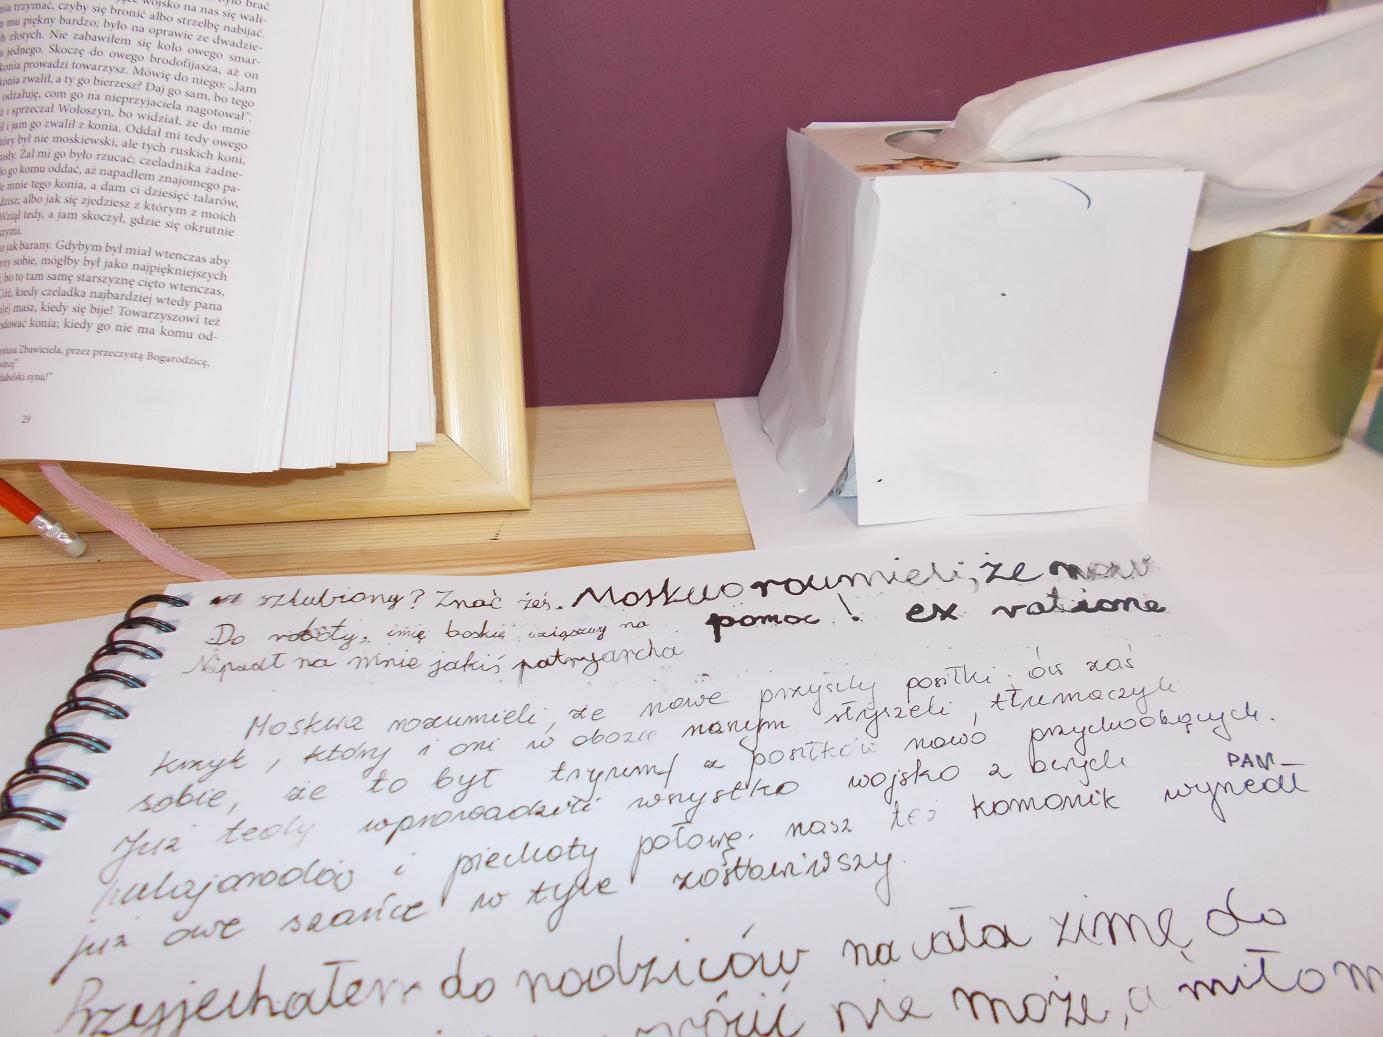 trzymać, czyby się bronić albo strzelbę nabijać.
mu piękny bardzo; było na oprawie ze dwadzie-
złotych. Nie zabawiłem się koło owego smar-
jednego. Skoczę do owego brodofijasza, aż on
konia prowadzi towarzysz. Mówię do niego: „Jam
konia zwalił, a ty go bierzesz? Daj go sam, bo tego
odżałuję, com go na nieprzyjaciela nagotował”.
i sprzeczał Wołoszyn, bo widział, że do mnie
i jam go zwalił z konia. Oddał mi tedy owego
był nie moskiewski, ale tych ruskich koni,
Żal mi go było rzucać; czeladnika żadne-
go komu oddać, aż napadłem znajomego pa-
mnie tego konia, a dam ci dziesięć talarów,
albo jak się zjedziesz z którym z moich
Wziął tedy, a jam skoczył, gdzie się okrutnie
jak barany. Gdybym był miał wtenczas aby
sobie, mógłby był jako najpiękniejszych
bo to tam samę starszyznę cięto wtenczas,
Cóż, kiedy czeladka najbardziej wtedy pana
masz, kiedy się bije! Towarzyszowi też
konia; kiedy go nie ma komu od-
Zbawiciela, przez przeczystą Bogarodzicę,
synu!”
29
szlubiony? Znać żeś. Moskwo roumieli, że now
Do roboty, imię boskie wziąwszy na pomoc! ex ratione
Napadł na mnie jakiś patryjarcha
Moskwa rozumieli, że nowe przyszły posiłki. ów zaś
krzyk, który i oni w obozie naszym słyszeli, tłumaczyli
sobie, że to był tryumf z posiłków nowo przychodzących.
Już tedy wprowadzili wszystko wojsko z onych PAN
hulajgrodów i piechoty połowę. nasz też komonik wyszedł
już owe szańce w tyle zostawiwszy.
Przyjechałem do rodziców na całą zimę, do
wrócić nie może, a miło m